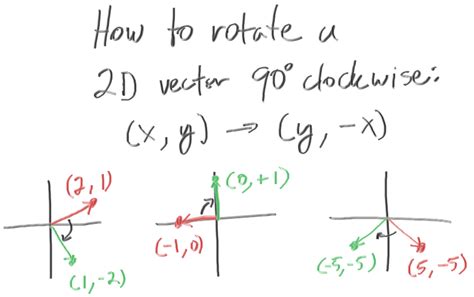 How to rotate a
2D vector 90° clockwise:
(x, y) → (y, -x)
(2, 1)
(1, -2)
(0, +1)
(-1, 0)
(-5, -5)
(5, -5)